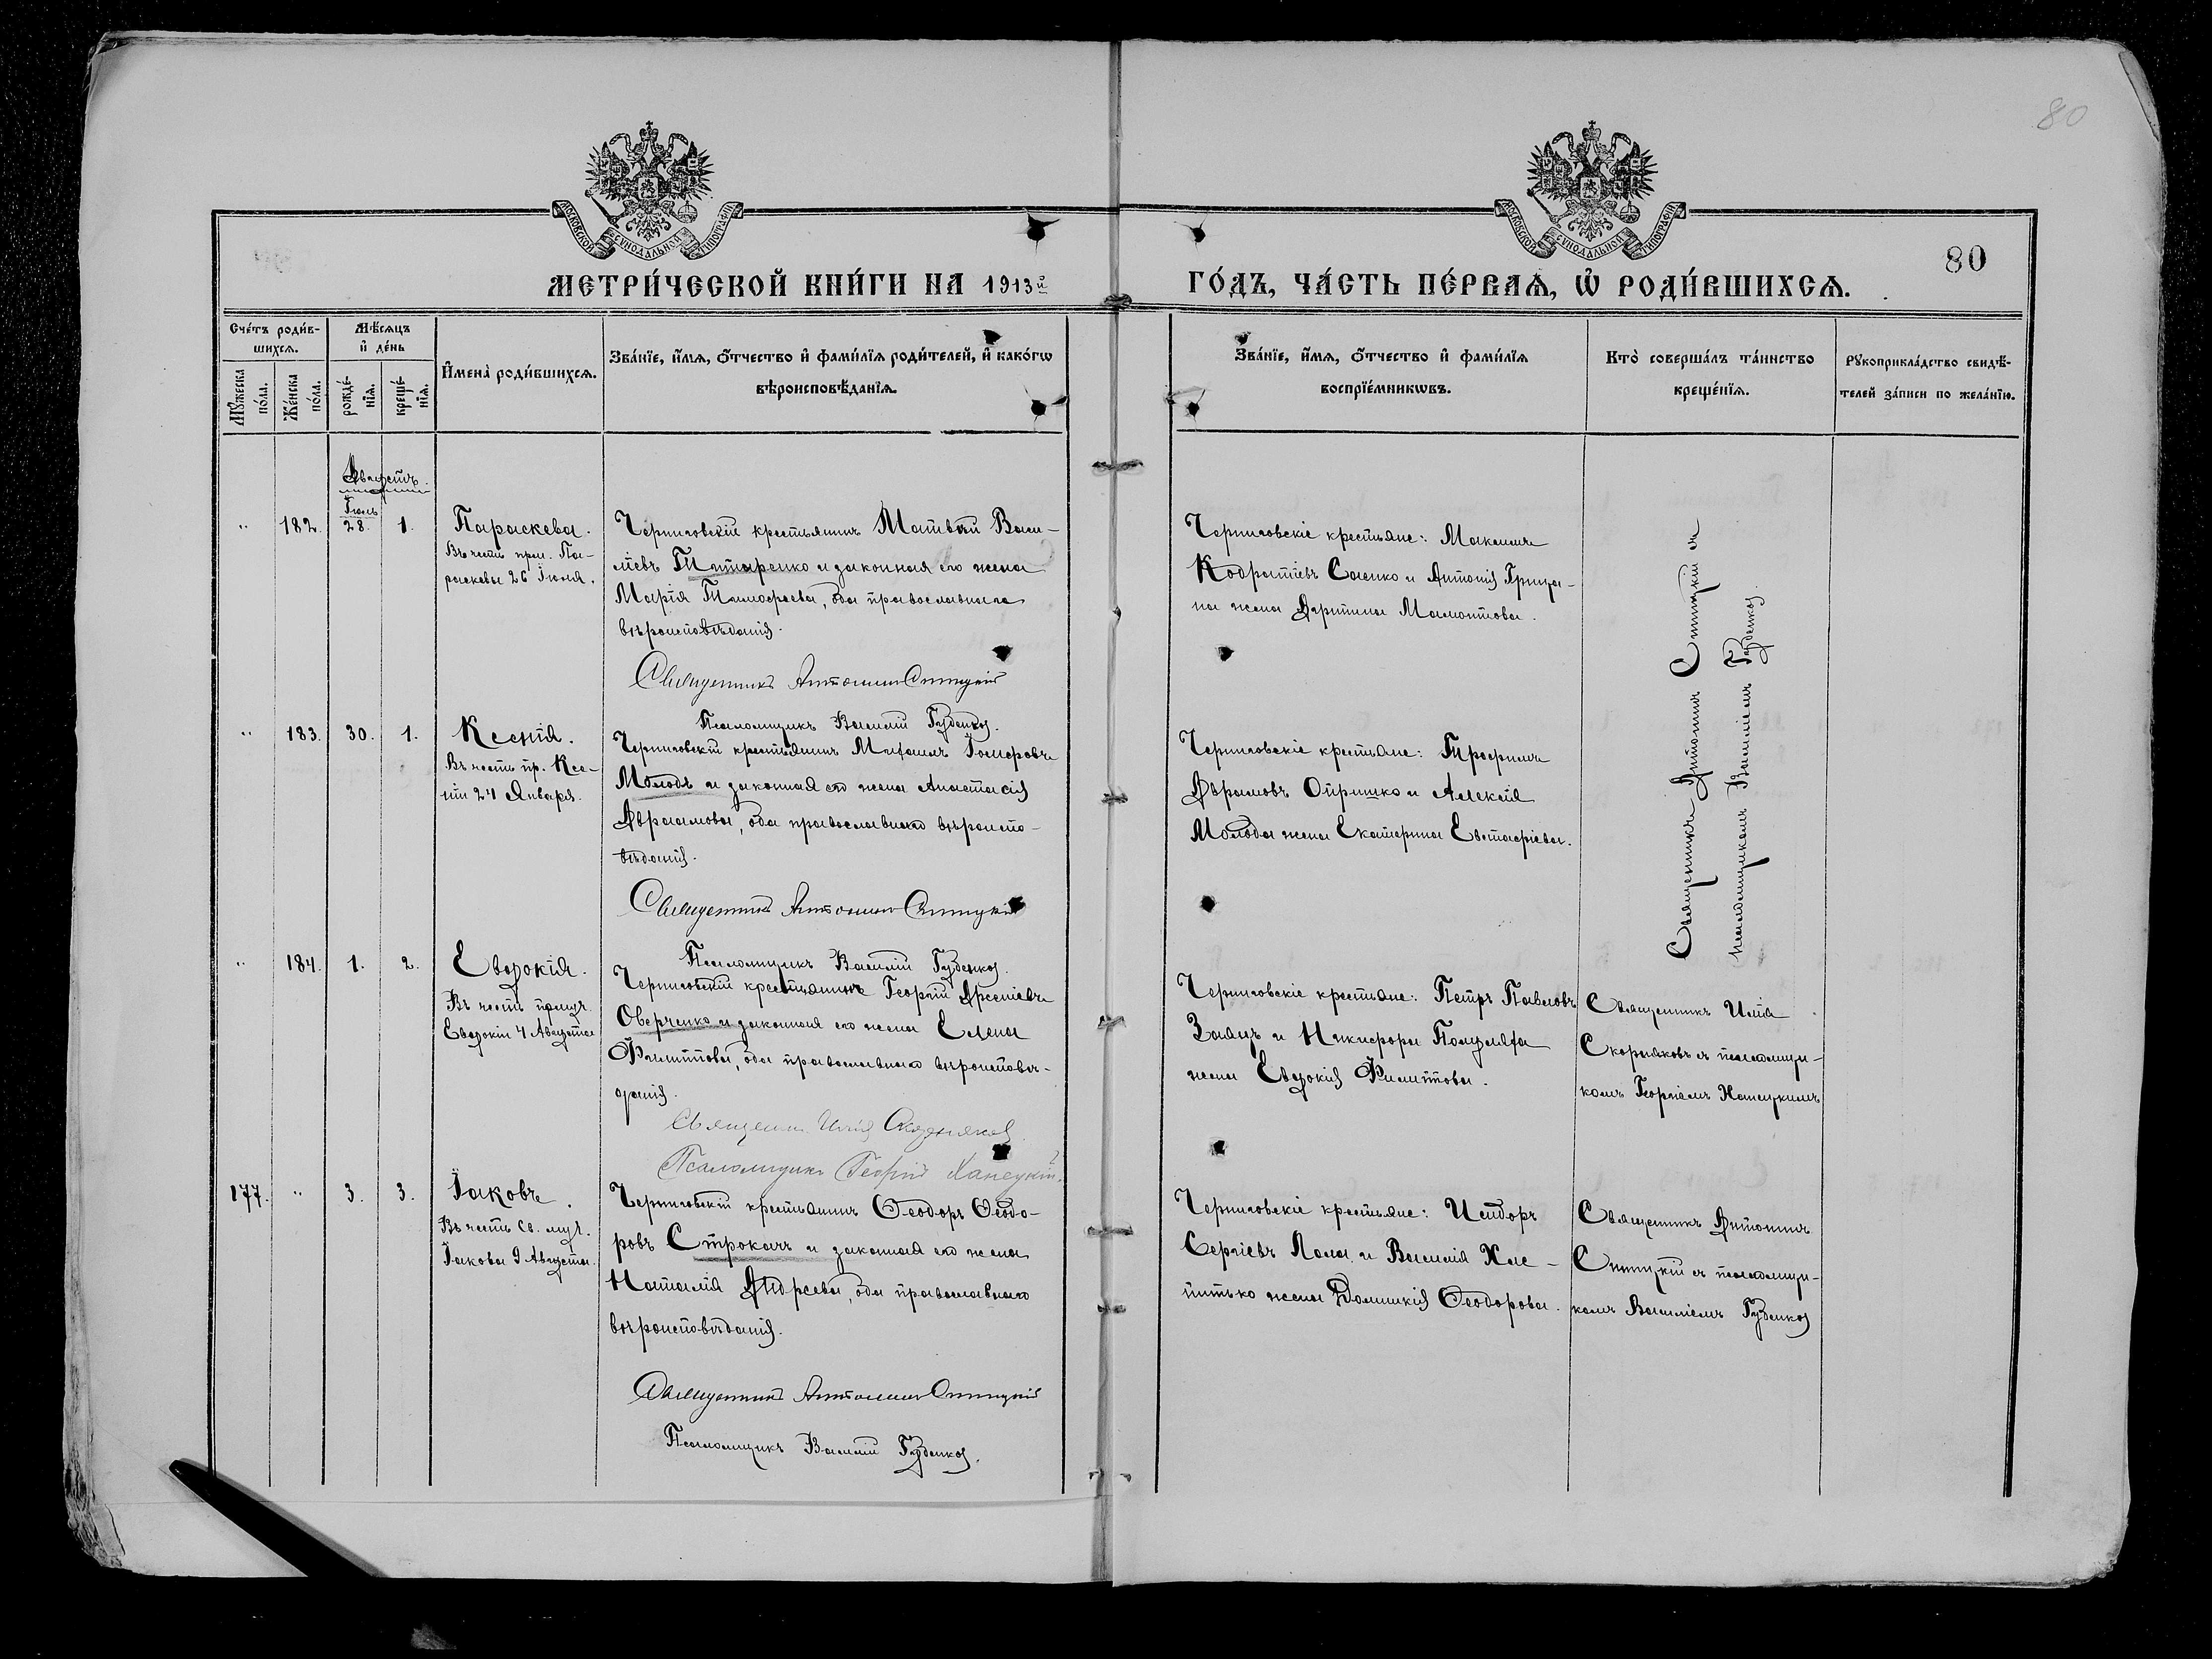 80
МОСКОВСКОЙ СѴНОДАЛЬНОЙ ТИПОГРАФІИ
МОСКОВСКОЙ СѴНОДАЛЬНОЙ ТИПОГРАФІИ
МЕТРИ́ЧЕСКОЙ КНИ́ГИ НА 1913й
ГО́ДЪ, ЧА́СТЬ ПЕ́РВАѦ, Ѿ РОДИ́ВШИХСѦ.
80
Сче́тъ роди́в-
шихсѧ.
Мѣ́сѧцъ
и҆ де́нь
Мꙋ́жеска
по́ла.
Же́нска
по́ла.
рожде́-
нїѧ.
креще́-
нїѧ.
И҆мена̀ роди́вшихсѧ.
Зва́нїе, и҆́мѧ, ѻ҆́тчество и҆ фами́лїѧ роди́телей, и҆ како́гѡ
вѣроисповѣ́данїѧ.
Зва́нїе, и҆́мѧ, ѻ҆́тчество и҆ фами́лїѧ
воспрїе́мникѡвъ.
Кто̀ соверша́лъ та́инство
креще́нїѧ.
Рꙋкоприкла́дство свидѣ́-
телей за́писи по жела́нїю.
Августъ.
Іюль
" 182. 28. 1.
Параскева.
Въ честь прм. Па-
раскевы 26 Іюля.
Черниговскій крестьянинъ Матвѣй Васи-
ліевъ Титаренко и законная его жена
Марія Тимофеева, оба православнаго
вѣроисповѣданія.
Священникъ Антоній Спицкій
Псаломщикъ Василій Губенко.
Черниговскіе крестьяне: Максимъ
Кодратіевъ Саенко и Антонія Грица-
на жена Мамонтова.
Священникъ Антоній Спицкій съ
псаломщикомъ Василіемъ Губенко.
" 183. 30. 1.
Ксенія.
Въ честь пр. Ксе-
ніи 24 Января.
Черниговскій крестьянинъ Михаилъ
Молодъ и законная его жена Анастасія
Авраамова, оба православнаго вѣроиспо-
вѣданія.
Священникъ Антоній Спицкій
Псаломщикъ Василій Губенко.
Черниговскіе крестьяне: Трофимъ
Авраамовъ Опришко и Алексія
Молода жена Екатерина Евстафіева.
" 184. 1. 2.
Евдокія.
Въ честь прмуч.
Евдокіи 4 Августа
Черниговскій крестьянинъ Георгій Арсеніевъ
Оверченко и законная его жена Елена
Филиппова, оба православнаго вѣроисповѣ-
данія.
Священникъ Илія Скорняковъ
Псаломщикъ Георгій Ханецкій.
Черниговскіе крестьяне: Петръ Павловъ
Заяцъ и Никифора
жена Евдокія Филиппова.
Священникъ Илія
Скорняковъ съ псаломщи-
комъ Георгіемъ Ханецкимъ
177. " 3. 3.
Іаковъ.
Въ честь св. муч.
Іакова 9 Августа.
Черниговскій крестьянинъ Ѳеодоръ Ѳеодо-
ровъ Строкачъ и законная его жена
Наталія Андреева, оба православнаго
вѣроисповѣданія.
Священникъ Антоній Спицкій
Псаломщикъ Василій Губенко.
Черниговскіе крестьяне: Исидоръ
Сергіевъ и Василія
жена Домникія Ѳеодорова.
Священникъ Антоній
Спицкій съ псаломщи-
комъ Василіемъ Губенко